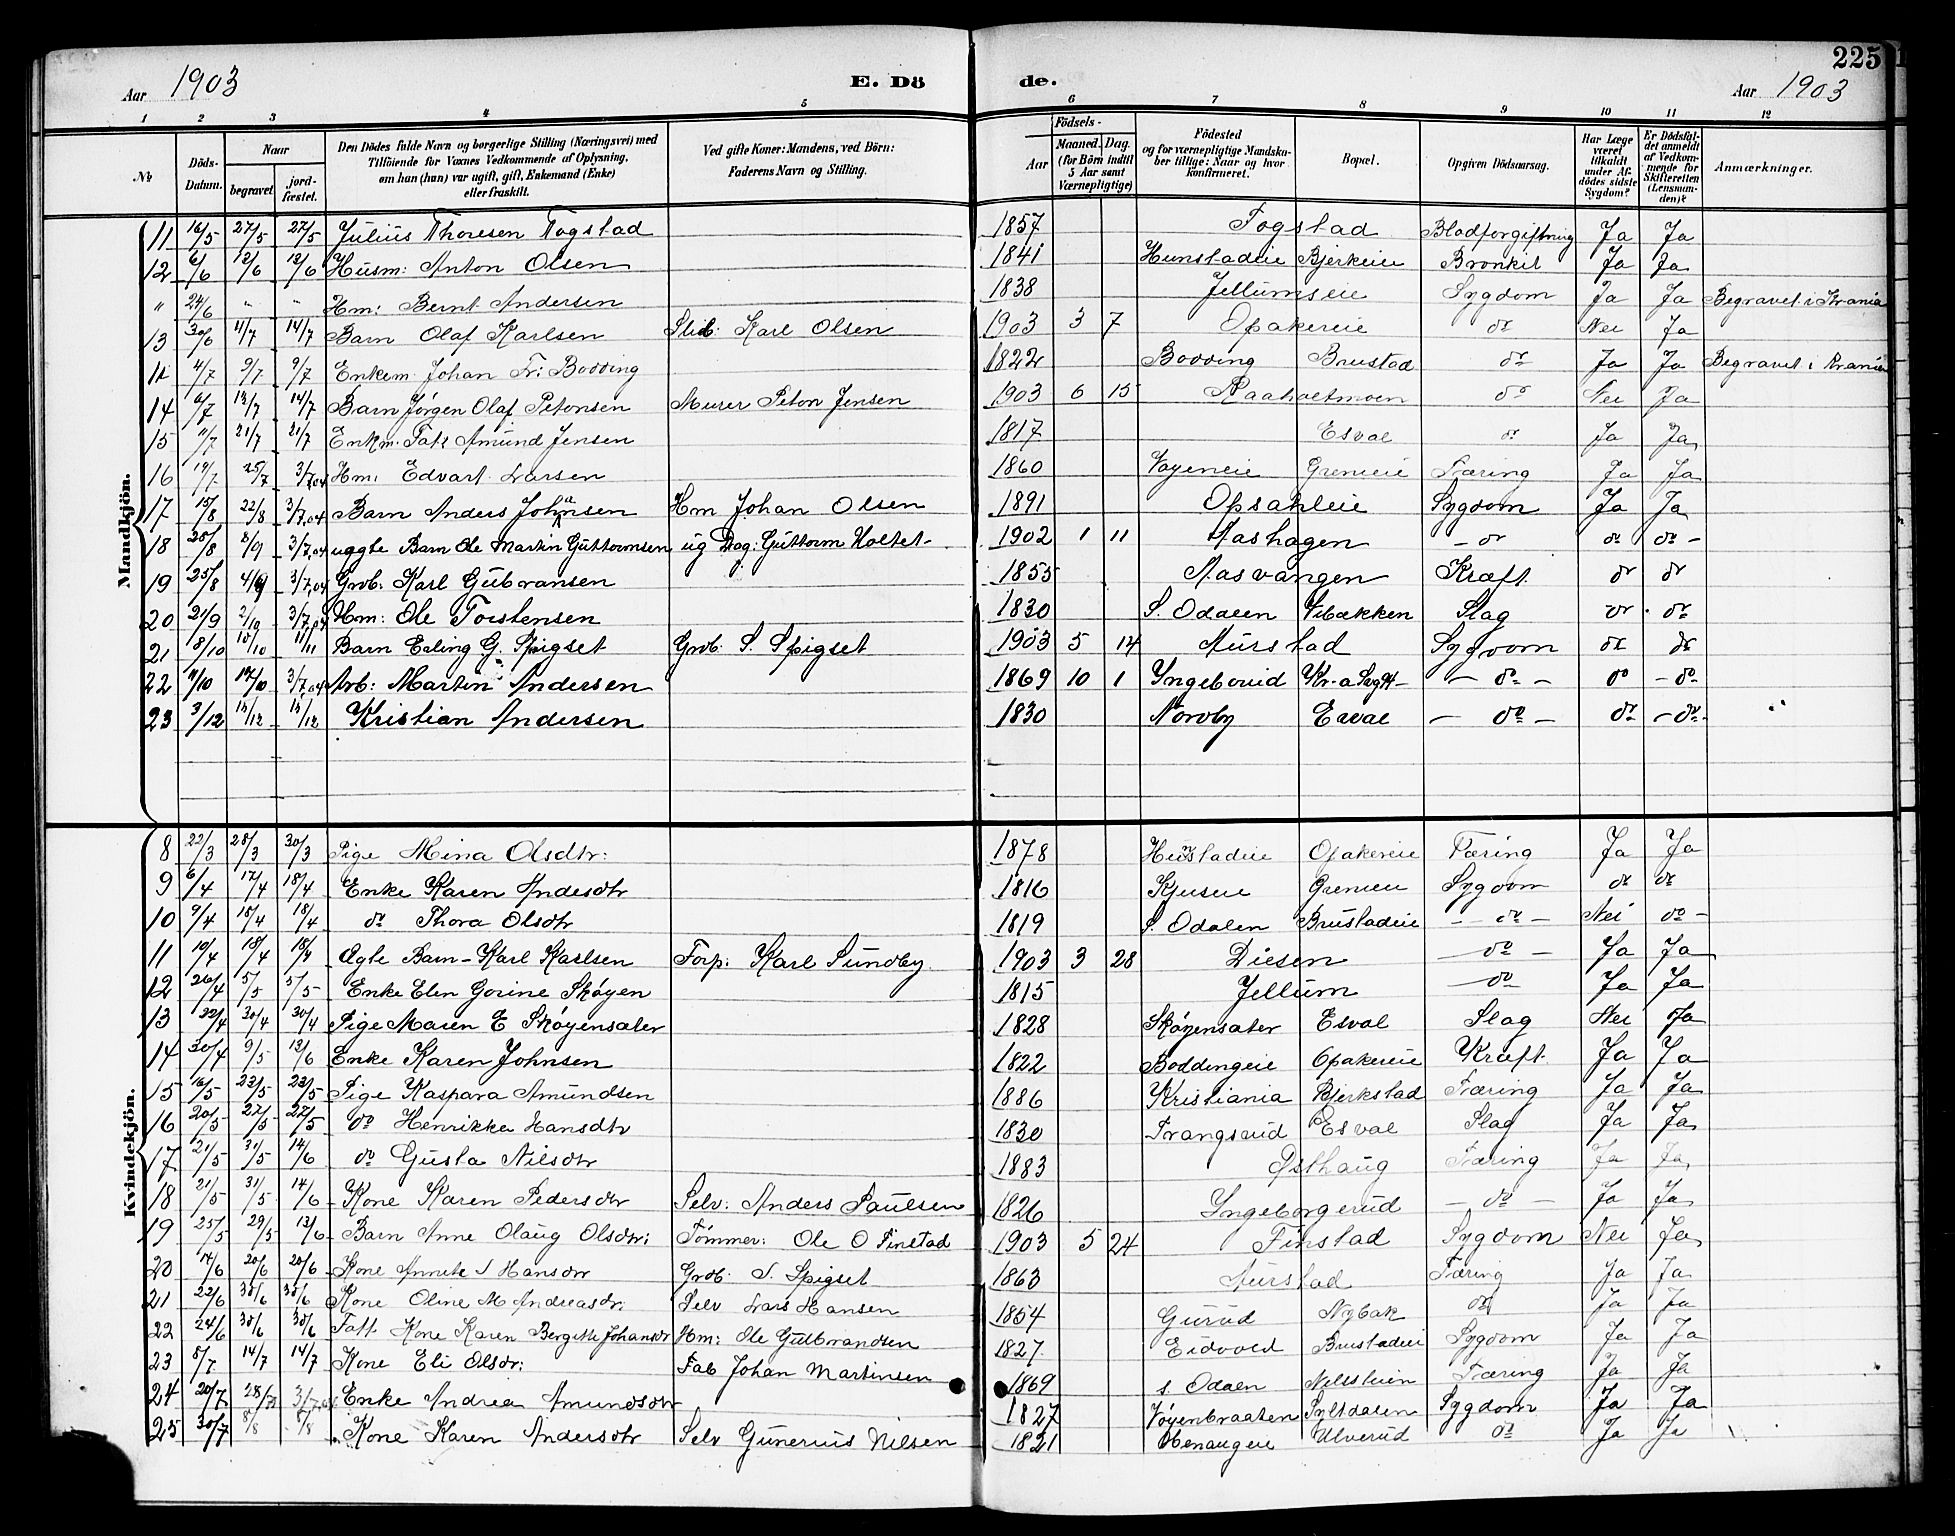 225
Aar 1903 E. Dö de. Aar 1903
1 2 3 4 5 6 7 8 9 10 11 12
No Döds-Datum. Naar begravet jord-fæstet. Den Dödes fulde Navn og borgerlige Stilling (Næringsvei) med Tilföiende for Voxnes Vedkommende af Oplysning, om han (hun) var ugift, gift, Enkemand (Enke) eller fraskilt. Ved gifte Koner: Mandens, ved Börn: Faderens Navn og Stilling. Födsels- Aar Maaned. Dag. (for Börn indtil 5 Aar samt Værnepligtige) Födested og for værnepligtige Mandska-ber tillige: Naar og hvor konfirmeret. Bopæl. Opgiven Dödsaarsag. Har Læge været tilkaldt under Af-dödes sidste Sygdom? Er Dödsfal-det anmeldt af Vedkom-mende for Skifteretten (Lensman-den)? Anmærkninger.
Mandkjön.
11 16/5 27/5 27/5 Julius Thoresen Fogstad 1857 Fogstad Blodforgiftning Ja Ja
12 6/6 12/6 12/6 Husm: Anton Olsen 1841 Hunstadeie Bjerkeeie Bronkit Ja Ja
" 24/6 " " Hm: Bernt Andersen 1838 Jellumseie Sygdom Ja Ja Begravet i Krania
13 30/6 11/7 14/7 Barn Olaf Karlsen Slib: Karl Olsen 1903 3 7 Opakereie do Nei Ja
11 4/7 9/7 9/7 Enkem. Johan Fr: Bodding 1822 Bodding Brustad do Ja Ja Begravet i Krania
14 6/7 13/7 14/7 Barn Jørgen Olaf Petersen Murer Peter Jensen 1903 6 15 Raaholtmoen do Nei Ja
15 11/7 21/7 21/7 Enkm. Fatt. Amund Jensen 1817 Esval do Ja Ja
16 19/7 25/7 3/7.04 Hm: Edvart Larsen 1860 Vøyeneie Grenieie Tæring Ja Ja
17 15/8 22/8 3/7.04 Barn Anders Johansen Hm Johan Olsen 1891 Opsahleie Sygdom Ja Ja
18 28/8 8/9 3/7.04 uægte Barn Ole Martin Guttormsen ug Dag: Guttorm Holtet 1902 1 11 Aashagen - do do do -
19 25/8 4/9 3/7.04 Grdb: Karl Gulbransen 1855 Aasvangen Kræft do do
20 21/9 2/10 3/7.04 Hm: Ole Torstensen 1830 S. Odalen Vibækken Slag do do
21 8/10 15/10 11/11 Barn Erling G. Spigset Grdb. S. Spigset 1903 5 14 Aurstad Sygdom do do
22 11/10 17/10 3/7.04 Arb: Martin Andersen 1869 10 1 Yngeboruid Kr.a Sygh - - do - do - do
23 3/12 15/12 15/12 Kristian Andersen 1830 Nordby Esval - do - do - do
Kvindekjön.
8 22/3 28/3 30/3 Pige Mina Olsdtr: 1878 Hunstadeie Opakereie Tæring Ja Ja
9 6/4 17/4 18/4 Enke Karen Andersdtr 1816 Kjuseie Grenieie Sygdom do do
10 9/4 18/4 18/4 do Thora Olsdtr 1819 S. Odalen Brustadeie - do - Nei do -
11 10/4 18/4 18/4 Ægte Barn - Karl Karlsen Forp: Karl Sundby 1903 3 28 Diesen - do - Ja Ja
12 26/4 5/5 5/5 Enke Elen Gorine Skøyen 1815 Jellum - do Ja Ja
13 22/4 30/4 30/4 Pige Maren E Skøyensæter 1828 Skøyensæter Esval Slag Nei Ja
14 30/4 9/5 13/6 Enke Karen Johnsen 1822 Boddingeie Opakereie Kræft Ja Ja
15 16/5 23/5 23/5 Pige Kaspara Amundsen 1886 Kristiania Bjerkstad Tæring Ja Ja
16 20/5 27/5 27/5 do Henrikke Hansdtr 1830 Trangsrud Esval Slag Ja Ja
17 21/5 31/5 14/6 do Gusta Nilsdtr 1883 Østhaug Tæring Ja Ja
18 21/5 31/5 14/6 Kone Karen Pedersdtr Selv: Anders Paulsen 1826 Yngeborgerud - do - Ja Ja
19 25/5 29/5 13/6 Barn Anne Olaug Olsdtr: Tømmer: Ole O Finstad 1903 5 24 Finstad Sygdom Nei Ja
20 14/6 20/6 20/6 Kone Annette S Hansdtr Grdb. S. Spigset 1863 Aurstad Tæring Ja Ja
21 22/6 30/6 30/6 Kone Oline M Andreasdr: Selv Lars Hansen 1854 Gurud Nybak do Ja Ja
22 24/6 30/6 30/6 Fatt Kone Karen Bergitte Johansdr Hm: Ole Gulbrandsen 1827 Eidvold Brustadeie Sygdom Ja Ja
23 8/7 14/7 14/7 Kone Eli Olsdr: Fab Johan Martinsen 1869 S. Odalen Nilsleien Tæring Ja Ja
24 20/7 28/7 3/7.04 Enke Andrea Amundsdtr 1827 Vøyenbraaten Syltdalen Sygdom Ja Ja
25 30/7 8/8 8/8 Kone Karen Andersdtr Selv Gunerius Nilsen 1821 Henaugeie Ulverud do Ja Ja